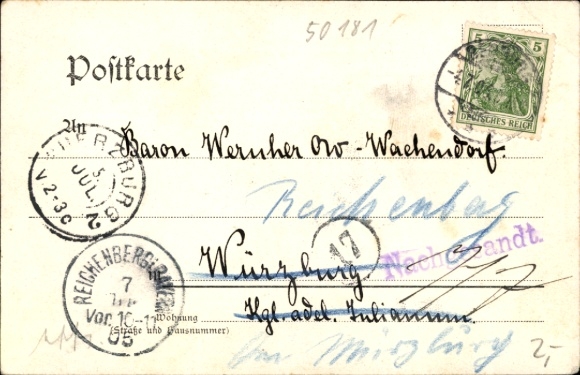 50181
Postkarte
5 5
DEUTSCHES REICH
An
Baron Wernher Ow-Wachendorf.
WUERZBURG 2
5
JUL.
V 2-3
Reichenberg
17
Würzburg.
Nachgesandt.
REICHENBERG
7
Vor. 10-11
05
Kgl. adel. Julianum.
Wohnung
(Straße und Hausnummer)
bei Würzburg
2,-